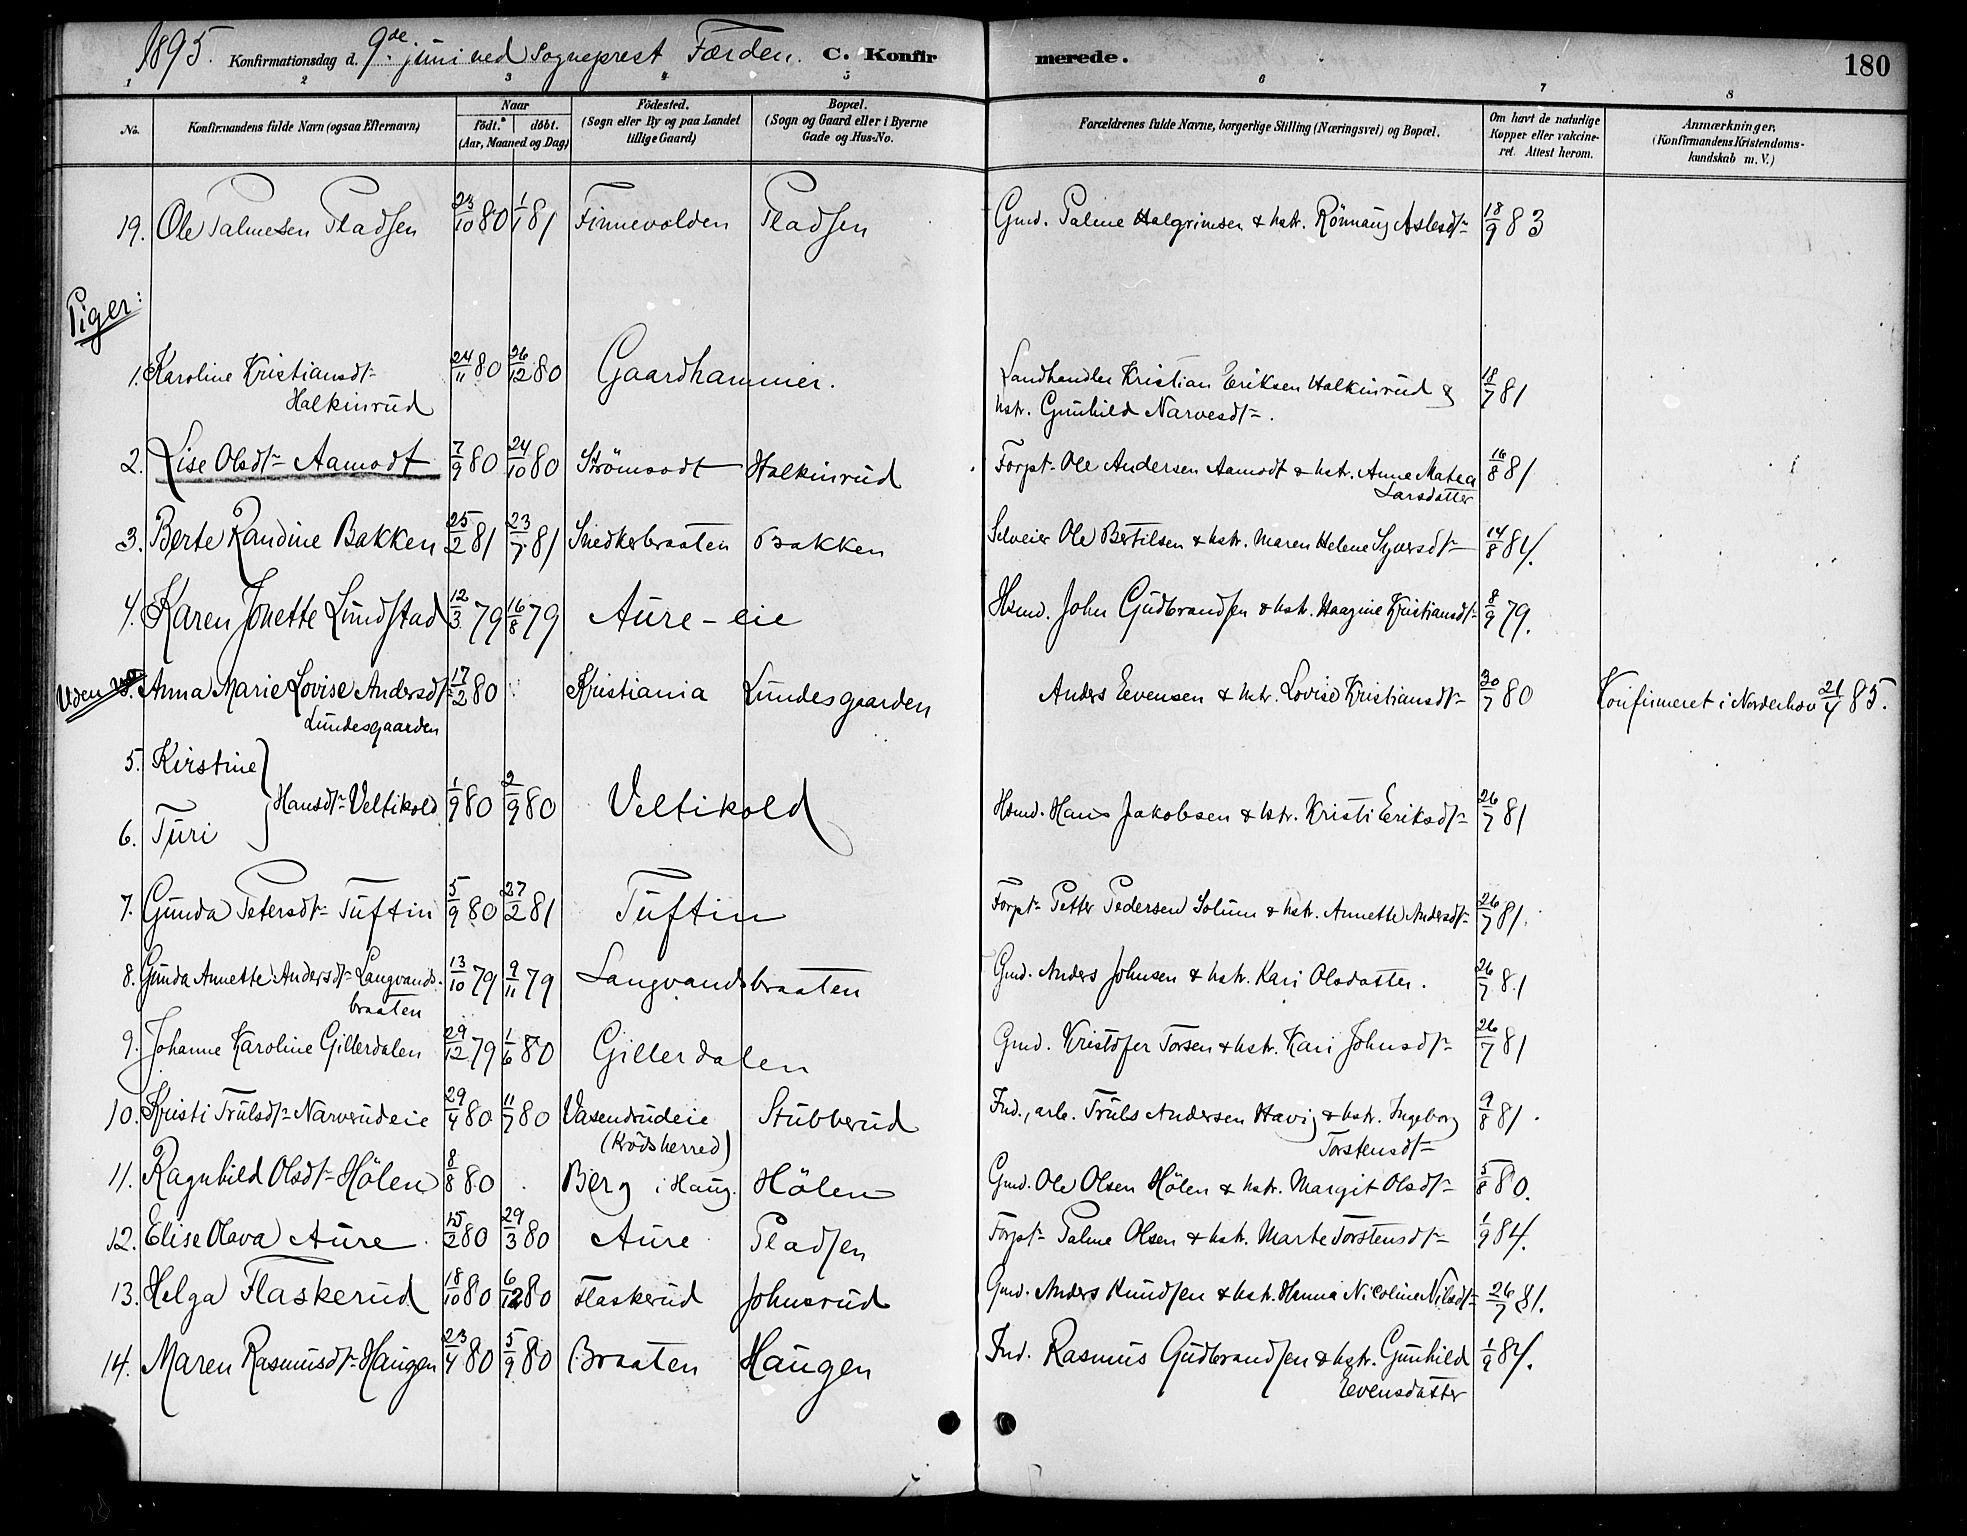 1895. Konfirmationsdag d. 9de juni ved Sogneprest Færden. C. Konfirmerede. 180
1 2 3 4 5 6 7 8
No. Konfirmandens fulde Navn (ogsaa Efternavn) Naar födt. döbt. (Aar, Maaned og Dag) Födested. (Sogn eller By og paa Landet tillige Gaard) Bopæl. (Sogn og Gaard eller i Byerne Gade og Hus-No. Forældrenes fulde Navne, borgerlige Stilling (Næringsvei) og Bopæl. Om havt de naturlige Kopper eller vakcineret. Attest herom. Anmærkninger. (Konfirmandens Kristendomskundskab m. V.)
19. Ole Palmesen Pladsen 23/10 80 1/1 81 Finnevolden Pladsen Gmd. Palme Halgrimsen & hstr. Rönnaug Aslesdtr 18/9 83
Piger:
1. Karoline Kristiansdtr Halkinrud 24/11 80 26/12 80 Gaardhammer. Landhandler Kristian Eriksen Halkinrud & hstr. Gunhild Narvesdtr. 18/7 81
2. Lise Olsdtr Aamodt 7/9 80 24/10 80 Strömsodt Halkinrud Forpt. Ole Andersen Aamodt & hstr. Anne Matea Larsdatter 16/8 81
3. Berte Randine Bakken 25/2 81 23/7 81 Snedkerbraaten Bakken Selveier Ole Bertilsen & hstr. Maren Helene Syversdtr 14/8 84.
4. Karen Jonette Lundstad 12/3 79 16/8 79 Aure-eie Hsmd. John Gudbrandsen & hstr. Haagine Kristiansdtr 8/9 79.
Uden No. Anna Marie Lovise Andersdtr Lundesgaarden 17/2 80 Kristiania Lundesgaarden Anders Evensen & hstr. Lovise Kristiansdtr 30/7 80 Konfirmeret i Norderhov 21/4 85.
5. Kirstine
6. Turi } Hansdtr Veltikold 1/9 80 2/9 80 Veltikold Hsmd. Hans Jakobsen & hstr. Kristi Eriksdtr 26/7 81
7. Gunda Petersdtr Tuftin 5/9 80 27/2 81 Tuftin Forpt. Petter Pedersen Solum & hstr. Annette Andersdtr 26/7 81.
8. Gunda Annette Andersdtr Langvandsbraaten 13/10 79 9/11 79 Langvandsbraaten Gmd. Anders Johnsen & hstr. Kari Olsdatter. 26/7 81
9. Johanne Karoline Gillerdalen 29/12 79 1/6 80 Gillerdalen Gmd. Kristofer Torsen & hstr. Kari Johnsdtr 26/7 81
10. Kristi Trulsdtr Narverudeie 29/4 80 11/7 80 Vasendrudeie (Krödsherred) Stubberud Ind., arb. Truls Andersen Havig & hstr. Ingeborg Torstensdtr 9/8 81.
11. Ragnhild Olsdtr Hölen 8/8 80 Berg i Haug. Hölen Gmd. Ole Olsen Hölen & hstr. Margit Olsdtr 5/8 80.
12. Elise Olava Aure 15/2 80 29/3 80 Aure Pladsen Forpt. Palme Olsen & hstr. Marte Torstensdtr 1/9 84.
13. Helga Flaskerud 18/10 80 6/12 80 Flaskerud Johnsrud Gmd. Anders Knudsen & hstr. Hanna Nicoline Nilsdtr 26/7 81.
14. Maren Rasmusdtr Haugen 23/4 80 5/9 80 Braaten Haugen Ind. Rasmus Gudbrandsen & hstr. Gunhild Evensdatter 1/9 84.